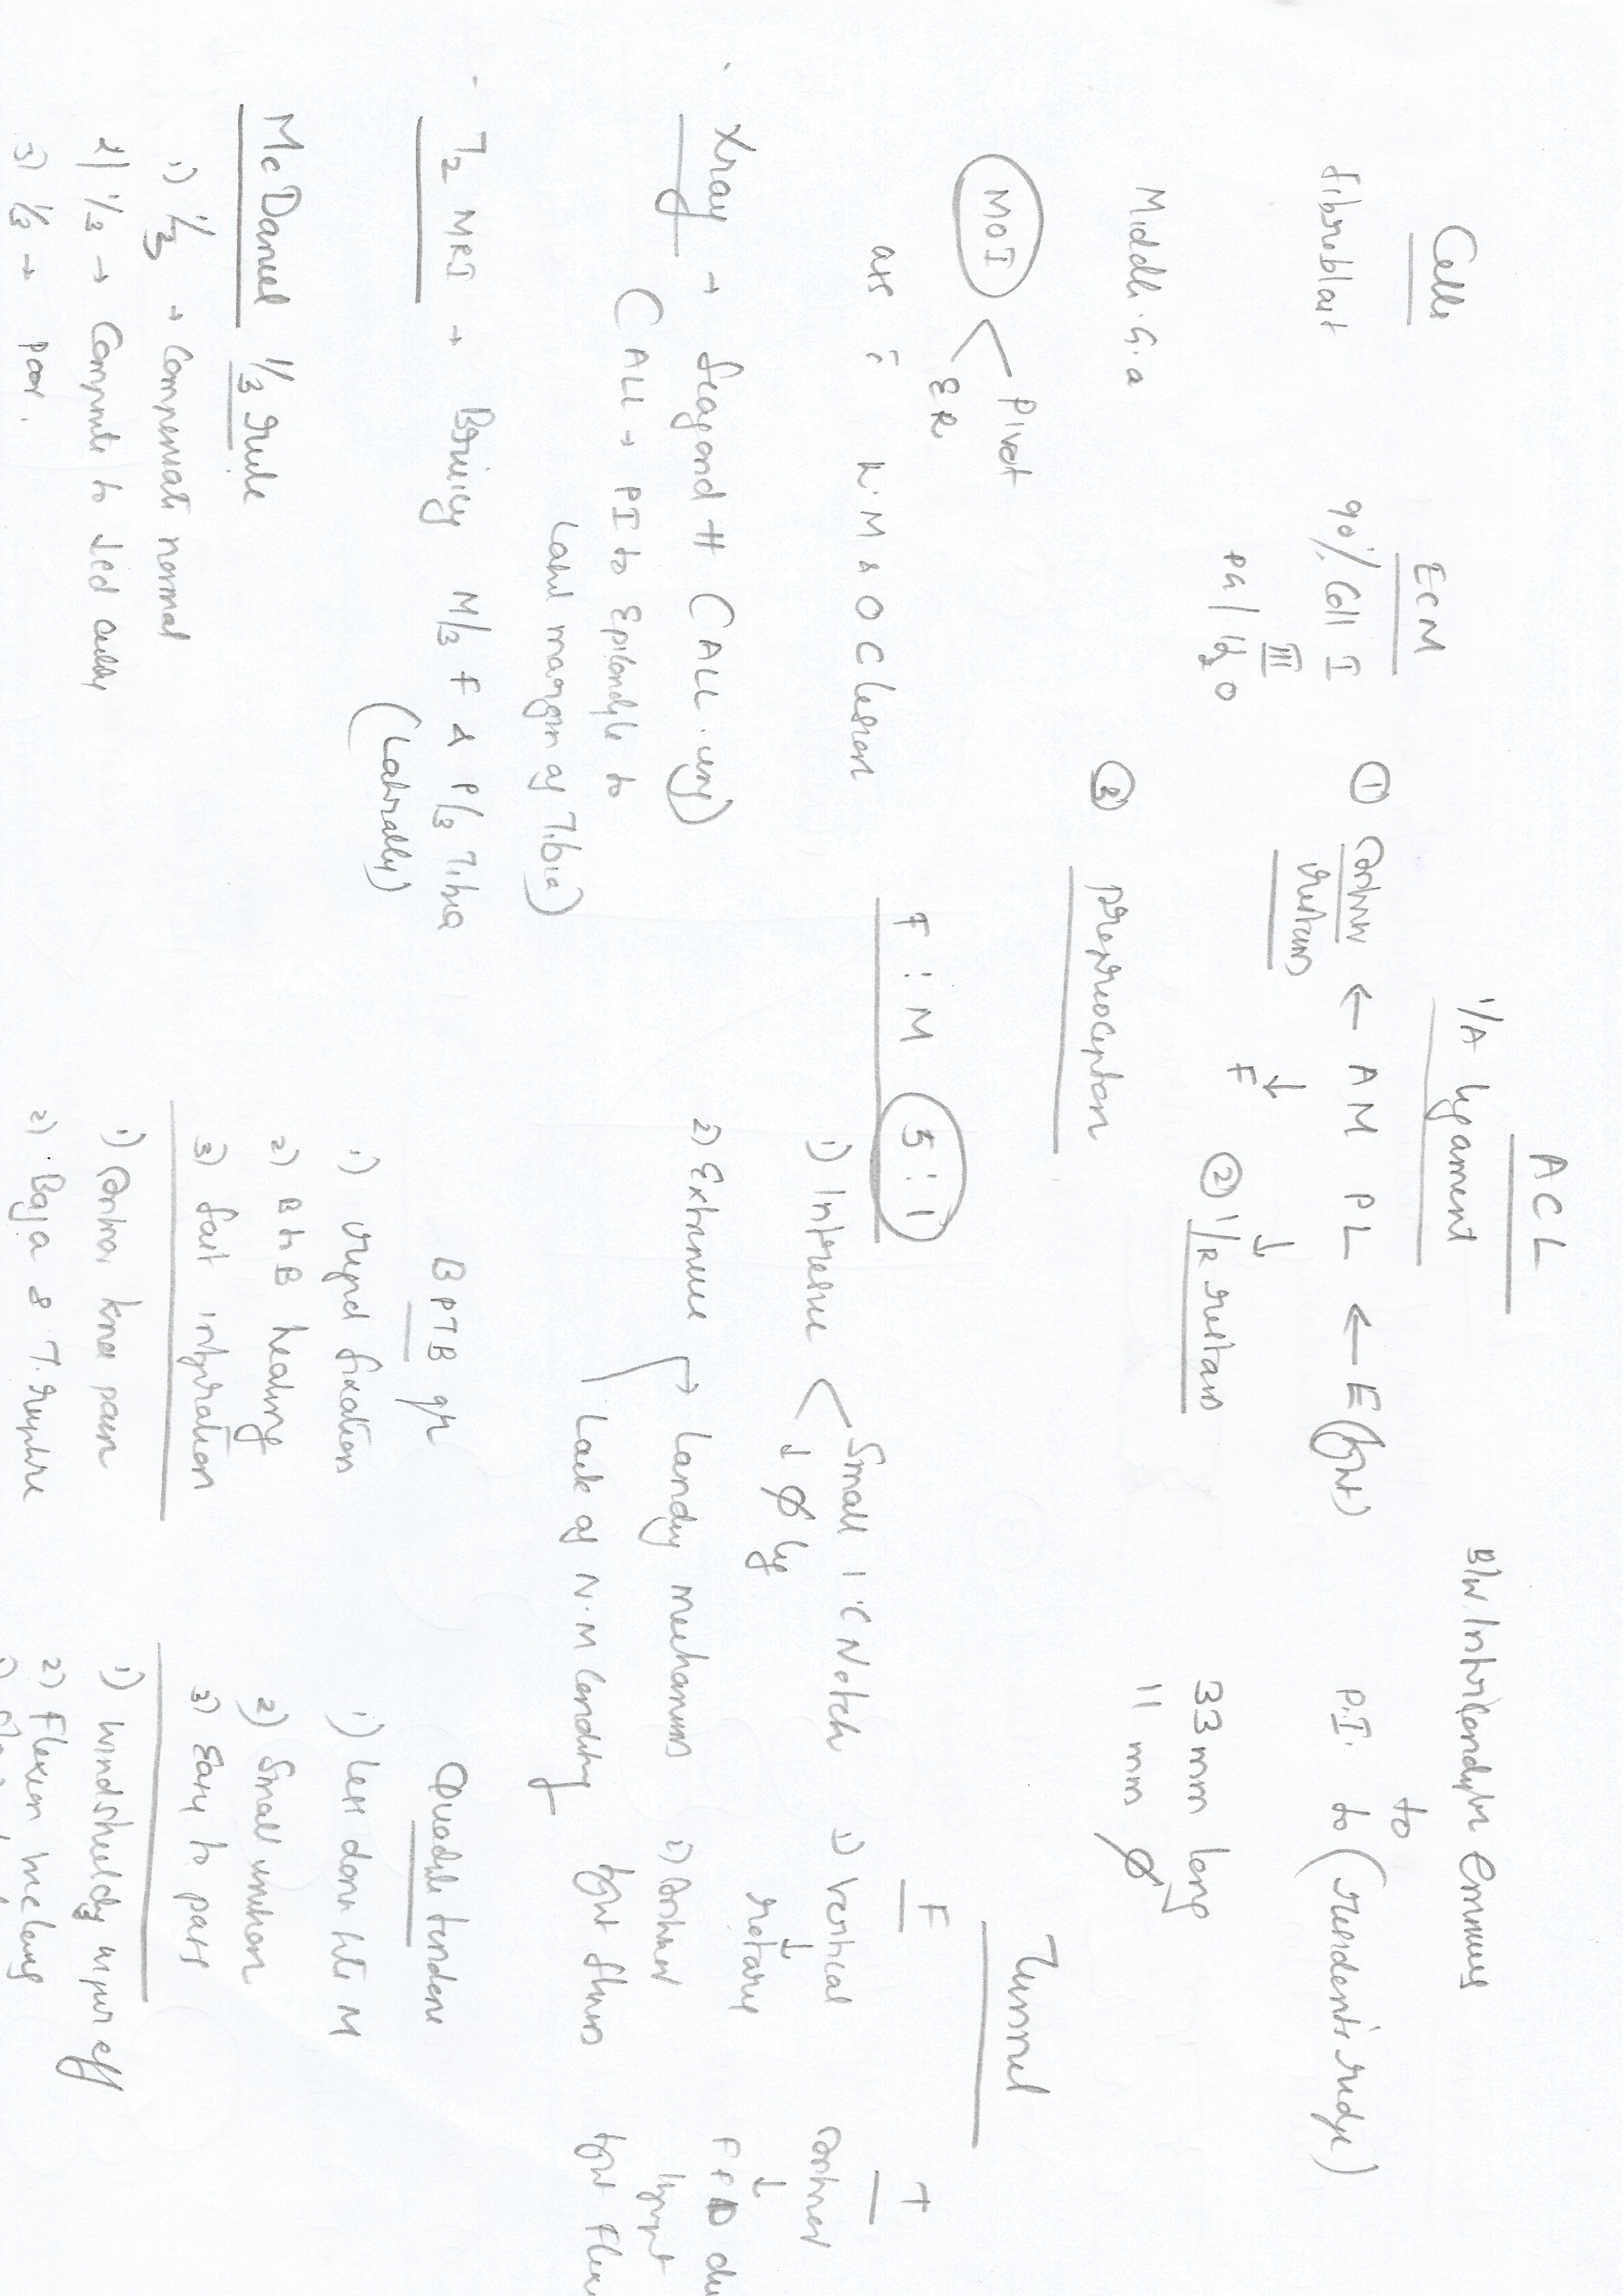 ACL
I/A ligament
B/w Intercondylar Eminence
to
P.I. to (resident's ridge)
33 mm long
11 mm Ø
Cells
fibroblast
Middle G.a
ECM
90% Coll I
III
PG/H2O
① Anterior ← AM PL ← E (tight)
restrain
↓ ↓
F
② I/R restrain
③ proprioception
MOI
Pivot
ER
ass c̄ L.M & OC lesion
F:M 5:1
1) Intrinsic < Small I.C Notch
↓ Ø lig
2) Extrinsic → Landing mechanism
Lack of N.M Condition
Tunnel
F
1) Vertical
↓
rotary
2) Anterior
tight flexion
T
Anterior
↓
FFD
tight
Xray → Segond # (ALL inj)
(ALL → PI to Epicondyle to
Lateral margin of Tibia)
T2 MRI → Bruising M/3 F & P/3 Tibia
(Laterally)
McDaniel 1/3 rule
1) 1/3 → Compensate normal
2) 1/3 → Compensate to
3) 1/3 → poor.
BPTB gr
1) rigid fixation
2) B to B healing
3) fast integration
1) Anterior knee pain
2) Baja & T. rupture
Quadruple tendon
1) Less donor site M
2) Small incision
3) Easy to pass
1) Windshield wiper eff
2) Flexion weakness